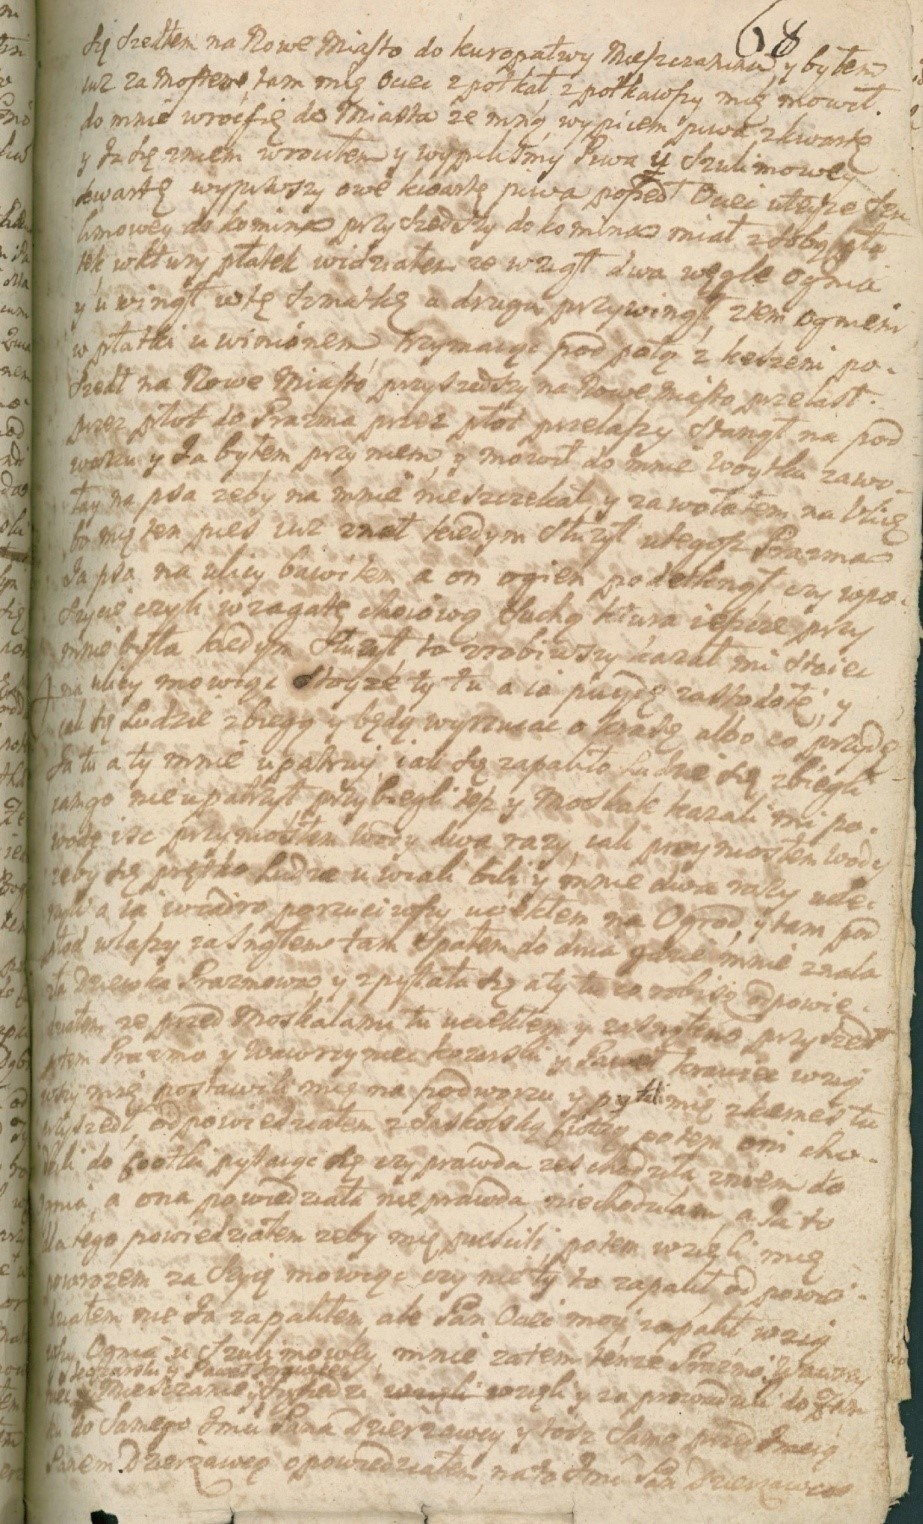 68
się szedłem na Nowe Miasto do kuropatwy Mieszczanina, y byłem
iuz za Mostem, tam mię Ociec zpotkał, zpotkawszy mię mowił
do mnie wrocsię do Miasta ze mną, wypiiem piwa zkwartę
y Ja się zniem wrociłem y wypiliśmy Piwa u Szulimowey
kwartę wypiwszy owe kwartę piwa poszedł Ociec uteyze Szu
limowey do komina przyszedszy do komina miał zsobą pła
tek wktury płatek widziałem ze wziął dwa węgle ognia
y uwinął wtę szmatkę a drugą przywinął, ztem ogniem
w płatki uwinionem, trzymaiąc pod połą z keszeni po-
szedł na Nowe Miasto, przyszedszy na Nowe Miasto przelasł
przez płot do Prazma przez płot przelaszy stanął na pod
worzu y Ja byłem przy niem, y mowił do mnie Woytku zawo-
łay na psa zeby na mnie nieszczekał, y zawołałem na Ulicę
bo mię ten pies iuz znał kiedym służył utegosz Prazma
Ja psa na ulicy bawiłem a on ogien podetknął czy wpo-
szycie czyli wzagatę choiową suchą ktura ieszcze przy
mnie była kiedym służył to zrobiwszy kazał mi stoiec
na ulicy mowiąc stoyze ty tu a ia puydę zastodołę, y
iak się Ludzie zbiegą y będą wyrzucac okrasę albo co przydę
Ja tu a ty mnie upatruj, iak się zapaliło Ludzie się zbiegli
iamgo nieupatrzył przybiegli tez y Moskale kazali mi po-
wodę isc przyniosłem Wody dwa razy, iak przyniosłem wody
zeby się prętko Ludzie uwiiali bili y mnie dwa razy ude-
rzyli a ia wiadro porzuciwszy uciekłem na Ogrod, y tam pod
płod wlaszy zasnąłem tam spałem do dnia gdzie mnie znala
zła Dziewka Prazmowa y zpytała się aty tu co robisz odpowie-
działem ze przed Moskalami tu uciekłem y zasnąłem przyszedł
potem Prazmo y Wawrzyniec Kozarski y Paweł krawiec wzią
wszy mię postawili mię na podworzu y pytali mię zkiemes tu
przyszedł odpowiedziałem z Laskolską ciotką potem oni cho-
dzili do Ciotki pytaiąc się czy prawda zes chodziła zniem do
gumna, a ona powiedziała nieprawda niechodziłam, a Ja to
dla tego powiedziałem zeby mię puscili, potem wzięli mię
powrozem za szyię mowiąc czy nie ty to zapalił, odpowie-
działem nie Ja zapaliłem ale Pan Ociec moy zapalił wziął
Ognia u Szulimowey mnie zatem tenze Prazmo y Wawrzy
niec Kozarski y Paweł krawiec
Mieszczanie, wzięli y zaprowadzili do Zam
ku do Samego Jmci Pana Dzierzawcy y toz Samo przed Jmcią
Panem Dzierzawcą opowiedziałem, nato Jmć Pan Dzierzawca